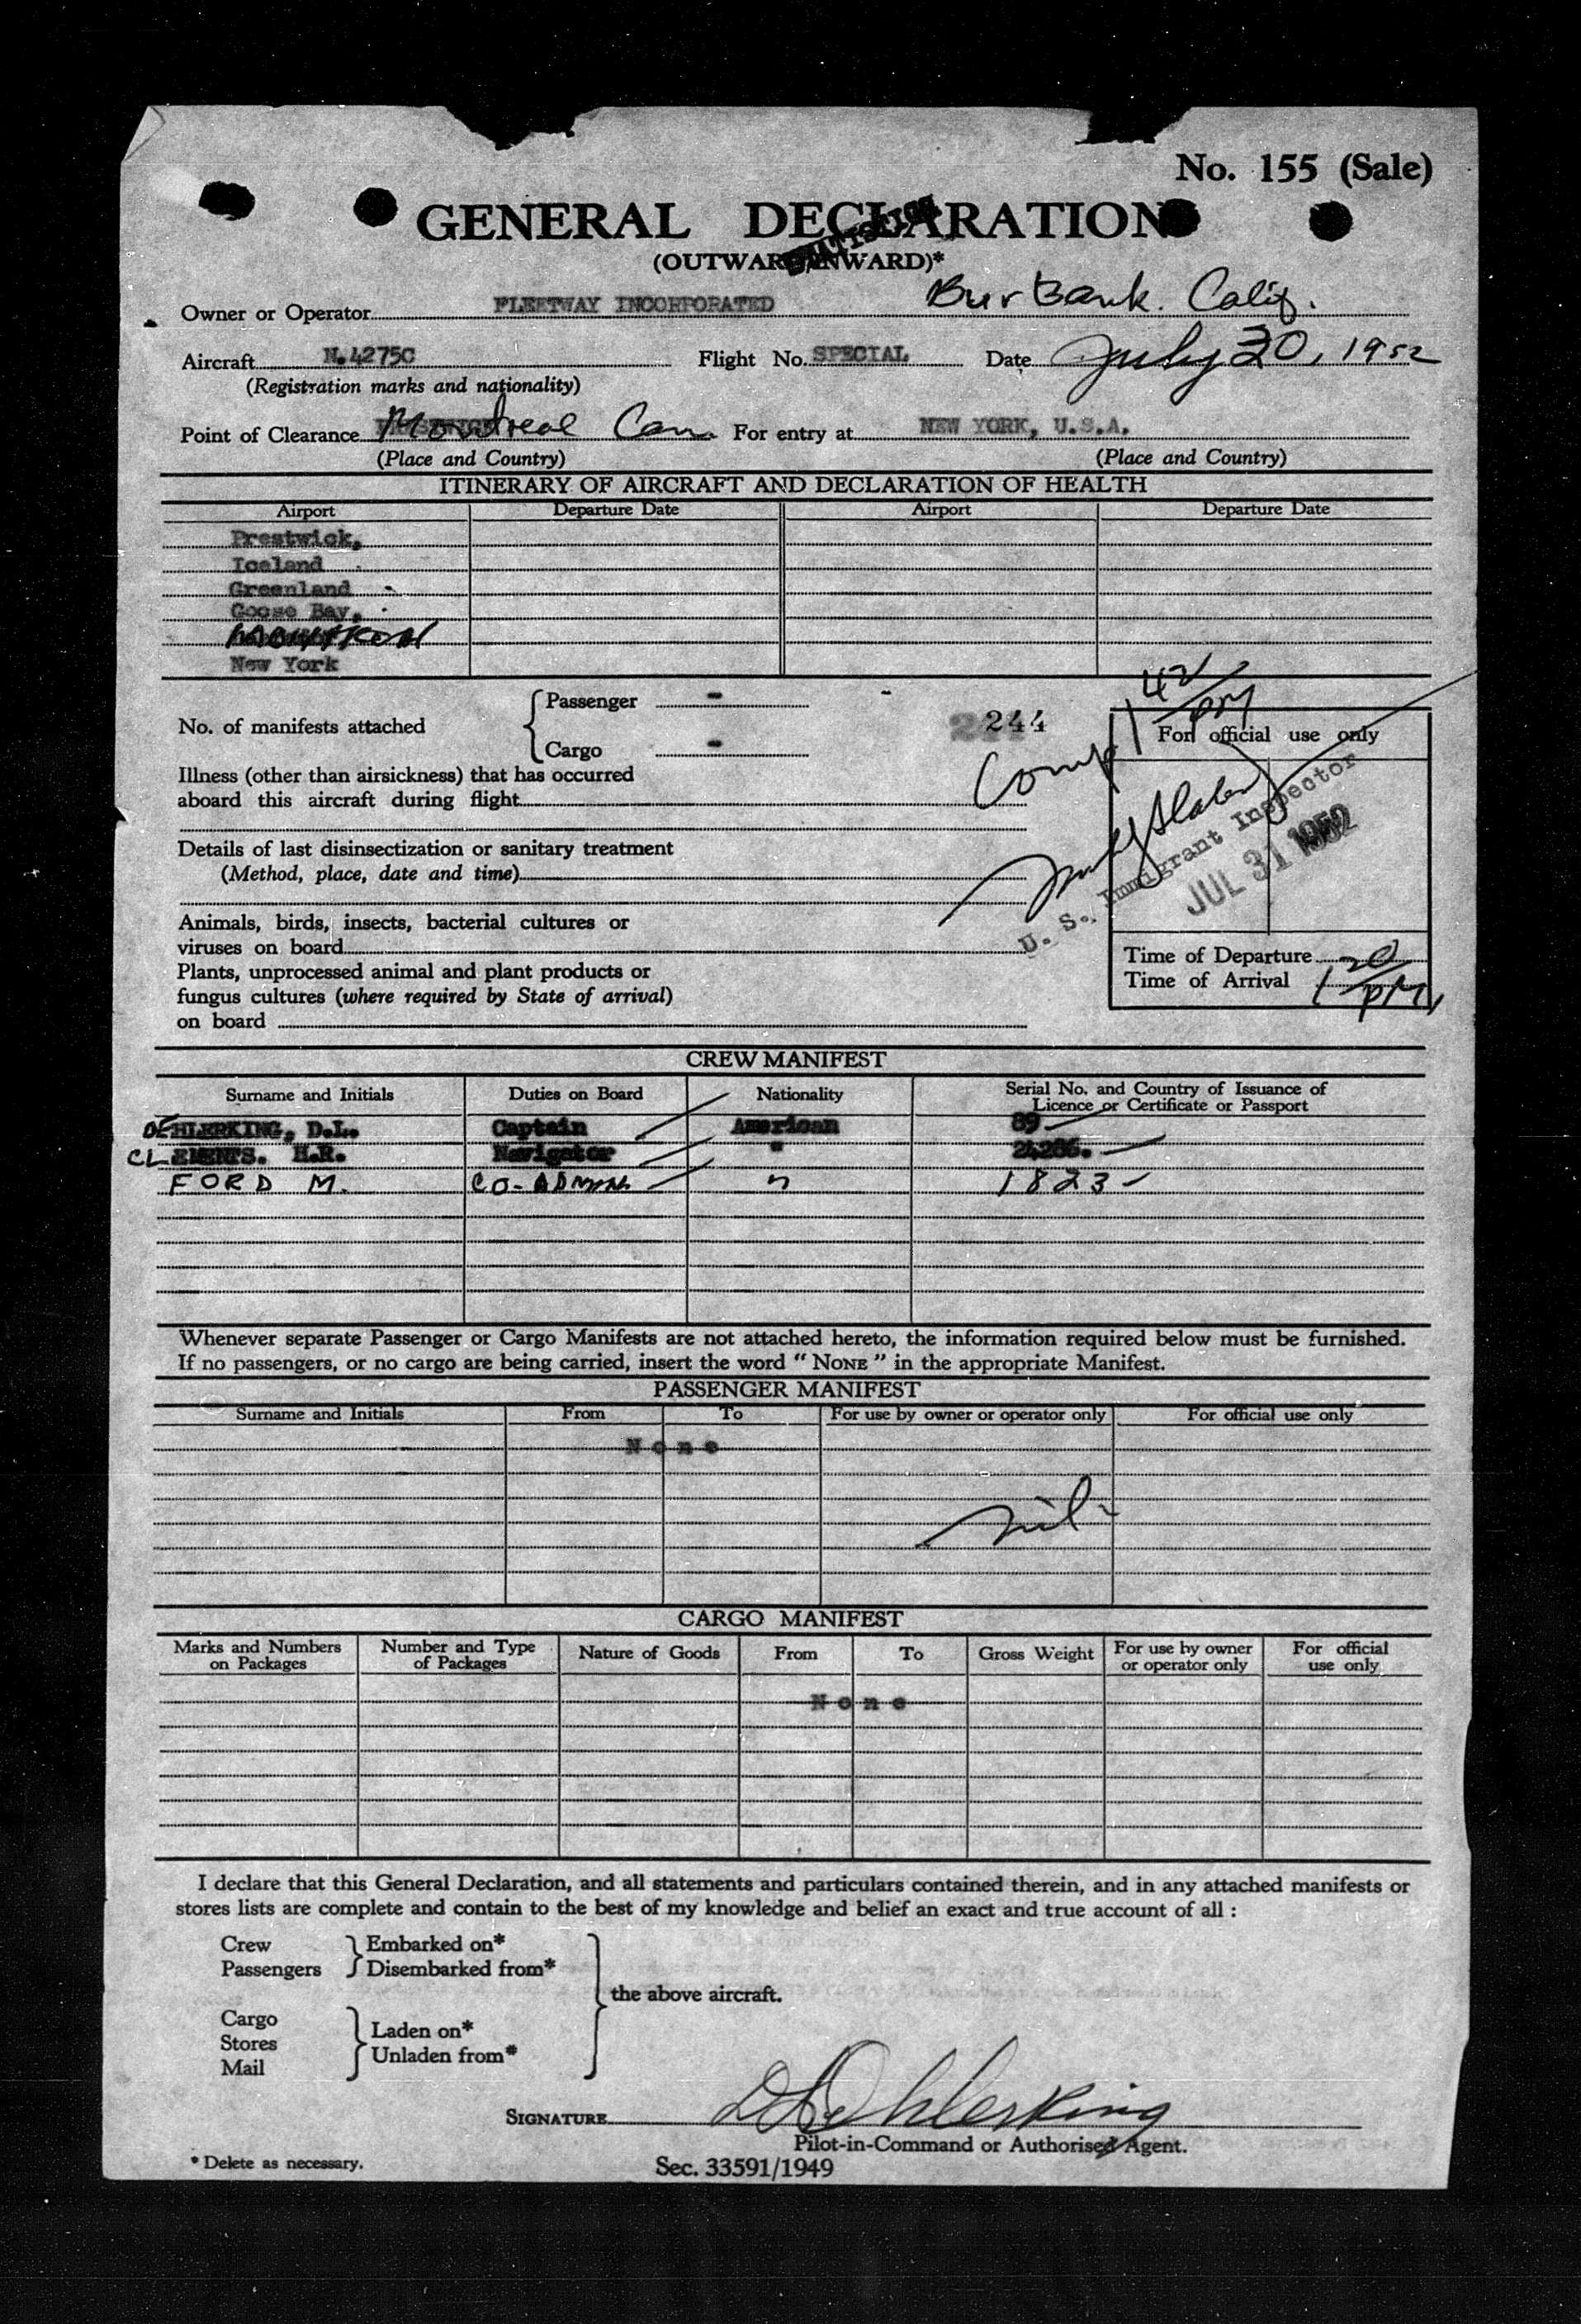 No. 155 (Sale)
GENERAL DECLARATION
(OUTWARD/INWARD)*
Owner or Operator FLEETWAY INCORPORATED Burbank. Calif.
Aircraft N.4275C Flight No. SPECIAL Date July 30, 1952
(Registration marks and nationality)
Point of Clearance Montreal Can. For entry at NEW YORK, U.S.A.
(Place and Country) (Place and Country)
ITINERARY OF AIRCRAFT AND DECLARATION OF HEALTH
Airport Departure Date Airport Departure Date
Prestwick,
Iceland
Greenland
Goose Bay,
New York
No. of manifests attached { Passenger -
Cargo -
244
Comp 1 42/PM
For official use only
Illness (other than airsickness) that has occurred
aboard this aircraft during flight
U. S. Immigrant Inspector
JUL 31 1952
Details of last disinsectization or sanitary treatment
(Method, place, date and time)
Animals, birds, insects, bacterial cultures or
viruses on board
Plants, unprocessed animal and plant products or
fungus cultures (where required by State of arrival)
on board
Time of Departure
Time of Arrival 1 20/PM
CREW MANIFEST
Surname and Initials Duties on Board Nationality Serial No. and Country of Issuance of
Licence or Certificate or Passport
OEHLERKING, D.L. Captain American 89
CLEMENTS. H.R. Navigator " 24286.
FORD M. " 1823
Whenever separate Passenger or Cargo Manifests are not attached hereto, the information required below must be furnished.
If no passengers, or no cargo are being carried, insert the word “ NONE ” in the appropriate Manifest.
PASSENGER MANIFEST
Surname and Initials From To For use by owner or operator only For official use only
None
nil
CARGO MANIFEST
Marks and Numbers on Packages Number and Type of Packages Nature of Goods From To Gross Weight For use by owner or operator only For official use only
None
I declare that this General Declaration, and all statements and particulars contained therein, and in any attached manifests or
stores lists are complete and contain to the best of my knowledge and belief an exact and true account of all :
Crew } Embarked on*
Passengers } Disembarked from*
the above aircraft.
Cargo
Stores } Laden on*
Mail } Unladen from*
SIGNATURE D L Oehlerking
Pilot-in-Command or Authorised Agent.
* Delete as necessary.
Sec. 33591/1949